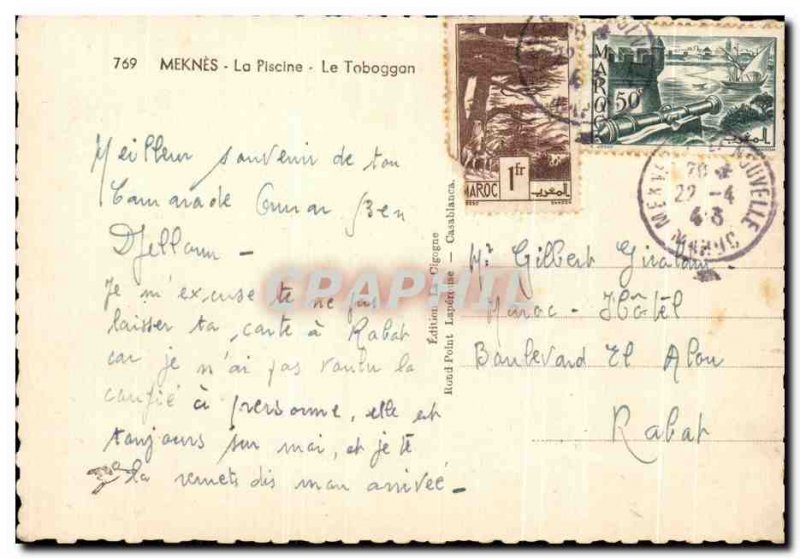 769 MEKNÈS - La Piscine - Le Toboggan
Meilleur souvenir de ton
Camarade Omar Ben
Djelloun -
Je m'excuse te ne pas
laisser ta carte à Rabat
car je n'ai pas voulu la
confié à personne, elle est
toujours sur moi, et je te
la remets dis mon arrivée -
Édition Cigogne
Rond Point Lapérouse - Casablanca.
MAROC
1fr
المغرب
MAROC
50c
المغرب
MEKNES NOUVELLE
20 *
22 -4
43
MAROC
Mr Gilbert
Maroc - Hôtel
Boulevard El Alou
Rabat
CPAPHIL